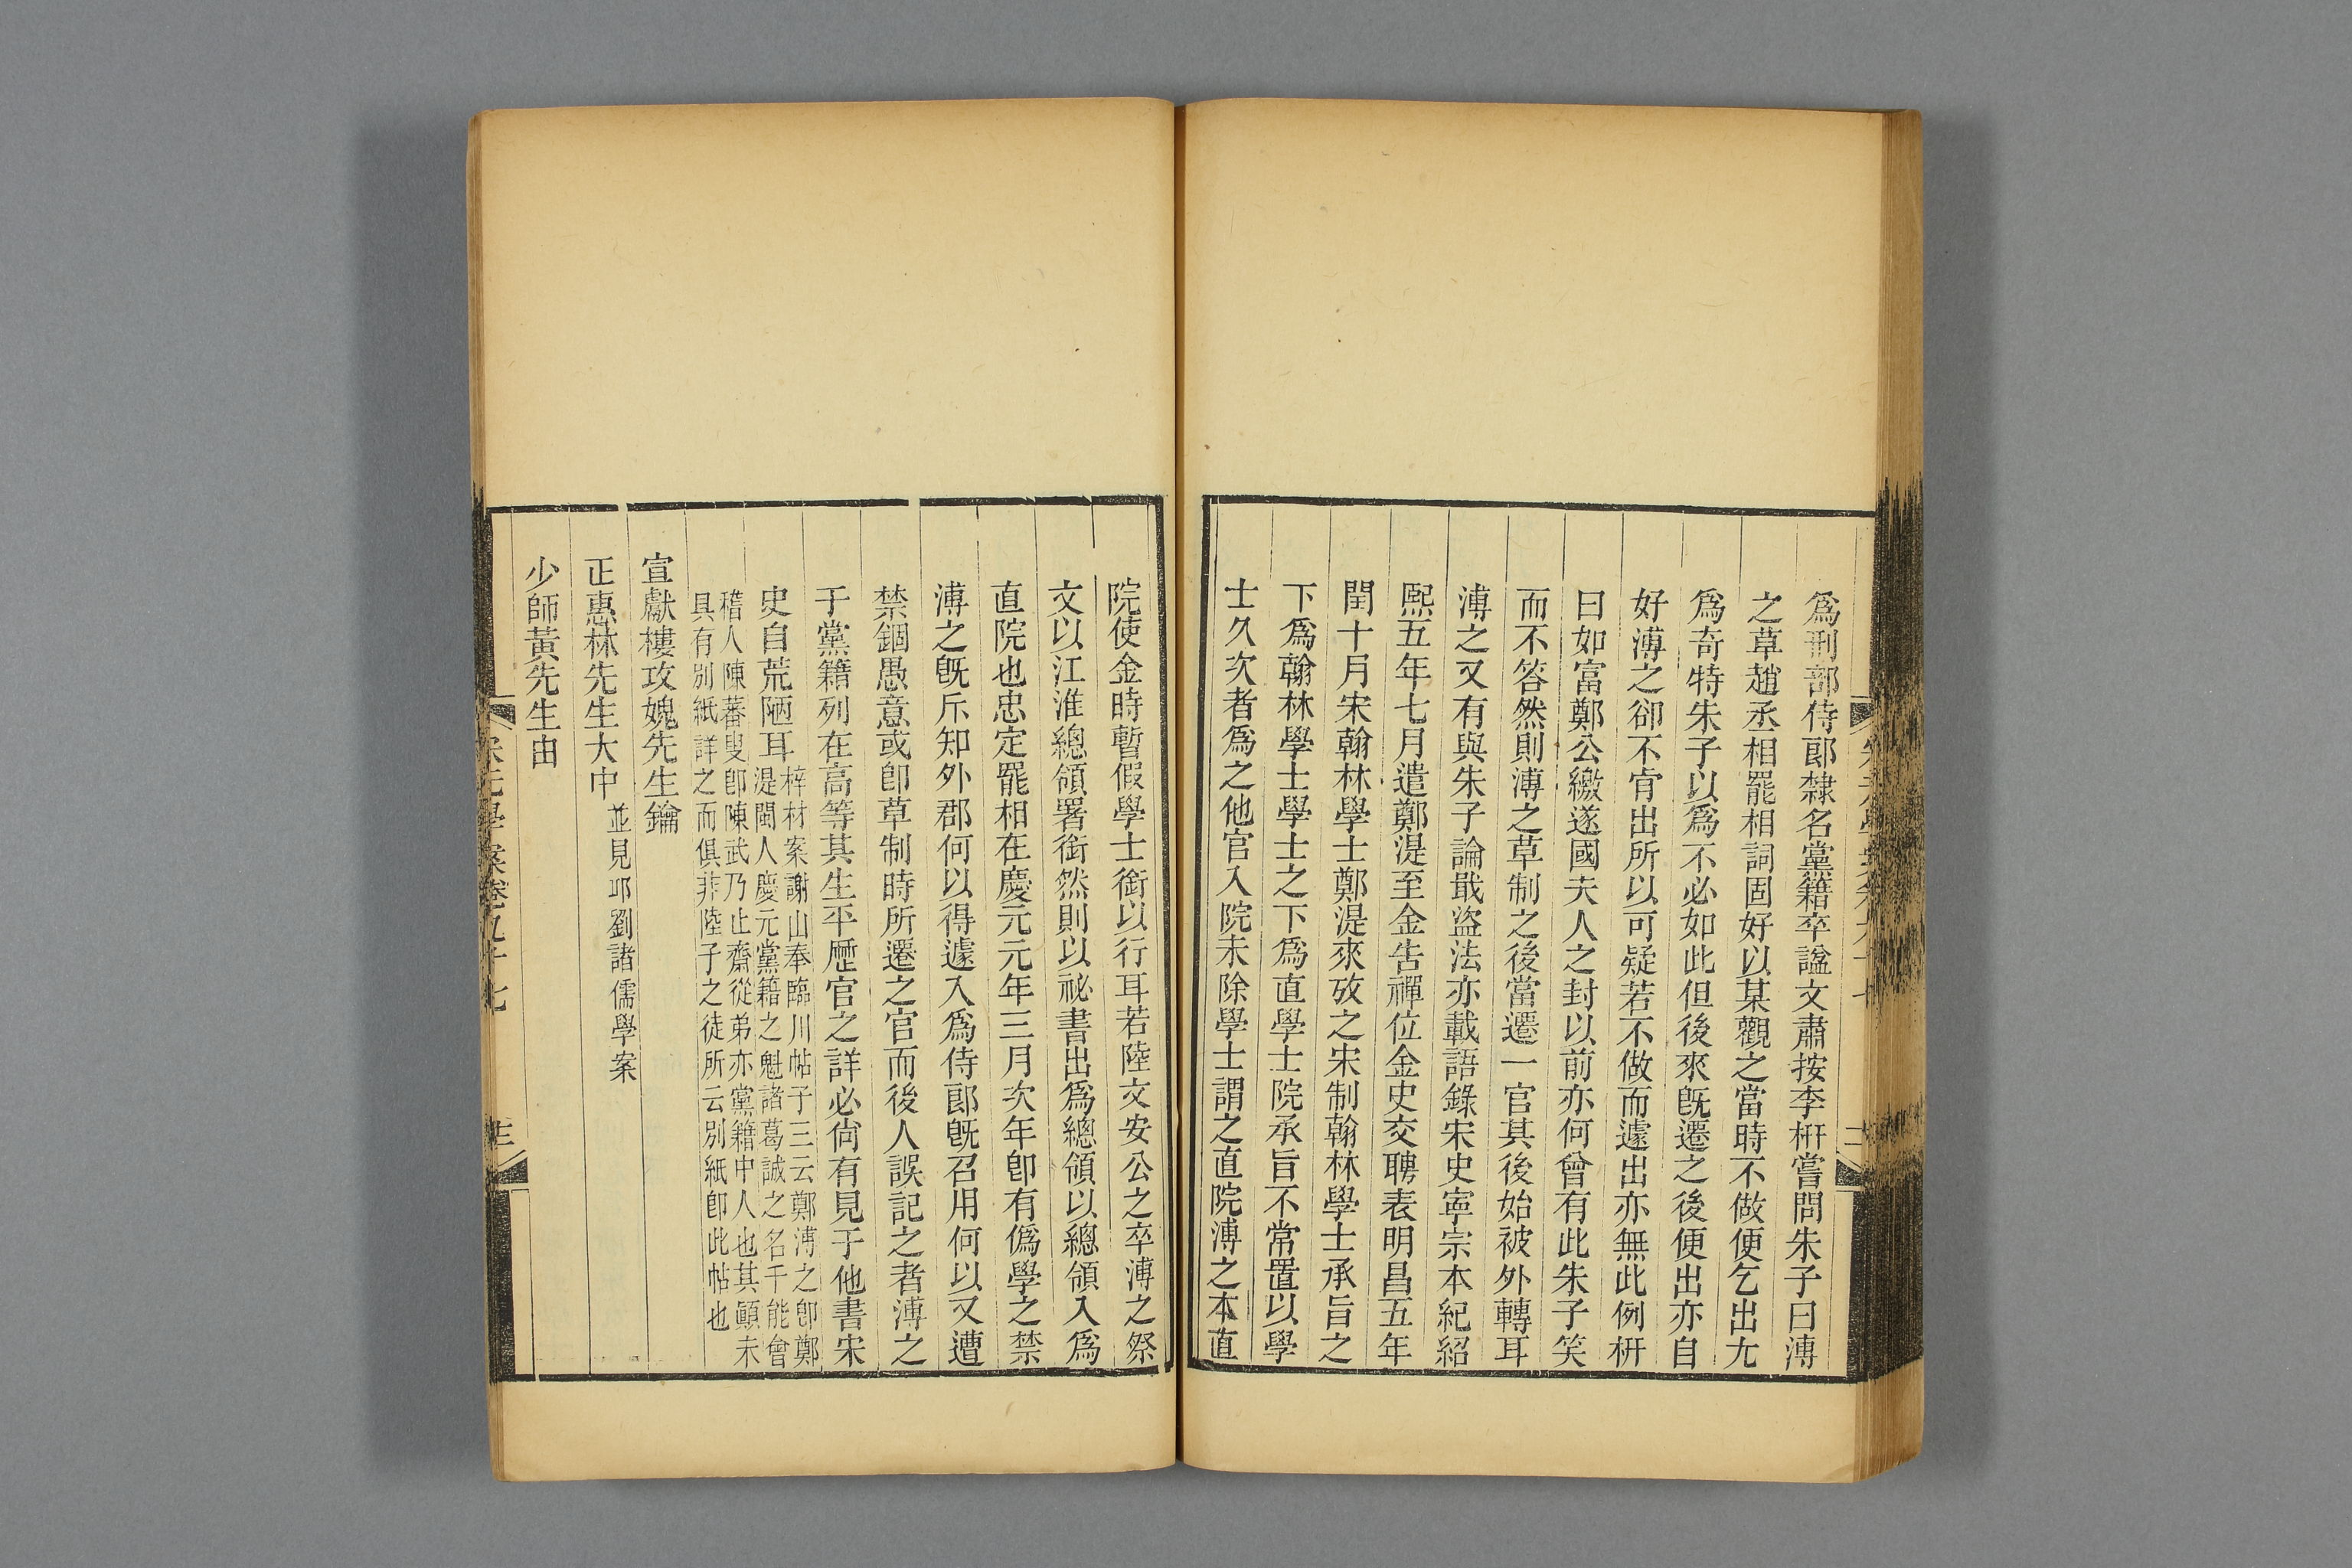 爲刑部侍郎隸名黨籍卒諡文肅按李枅嘗問朱子曰溥
之草趙丞相罷相詞固好以某觀之當時不做便乞出尢
爲奇特朱子以爲不必如此但後來旣遷之後便出亦自
好溥之卻不肯出所以可疑若不做而遽出亦無此例枅
曰如富鄭公繳遂國夫人之封以前亦何曾有此朱子笑
而不答然則溥之草制之後當遷一官其後始被外轉耳
溥之又有與朱子論戢盜法亦載語錄宋史寧宗本紀紹
熙五年七月遣鄭湜至金告禪位金史交聘表明昌五年
閏十月宋翰林學士鄭湜來攷之宋制翰林學士承旨之
下爲翰林學士學士之下爲直學士院承旨不常置以學
士久次者爲之他官入院未除學士謂之直院溥之本直
院使金時暫假學士銜以行耳若陸文安公之卒溥之祭
文以江淮總領署銜然則以祕書出爲總領以總領入爲
直院也忠定罷相在慶元元年三月次年卽有僞學之禁
溥之旣斥知外郡何以得遽入爲侍郎旣召用何以又遭
禁錮愚意或卽草制時所遷之官而後人誤記之者溥之
于黨籍列在高等其生平歷官之詳必尙有見于他書宋
史自荒陋耳
梓材案謝山奉臨川帖子三云鄭溥之卽鄭
湜閩人慶元黨籍之魁諸葛誠之名千能會
稽人陳蕃叟卽陳武乃止齋從弟亦黨籍中人也其顚末
具有別紙詳之而俱非陸子之徒所云別紙卽此帖也
宣獻樓攻媿先生鑰
正惠林先生大中
並見邱劉諸儒學案
少師黃先生由
宋元學案卷九十七